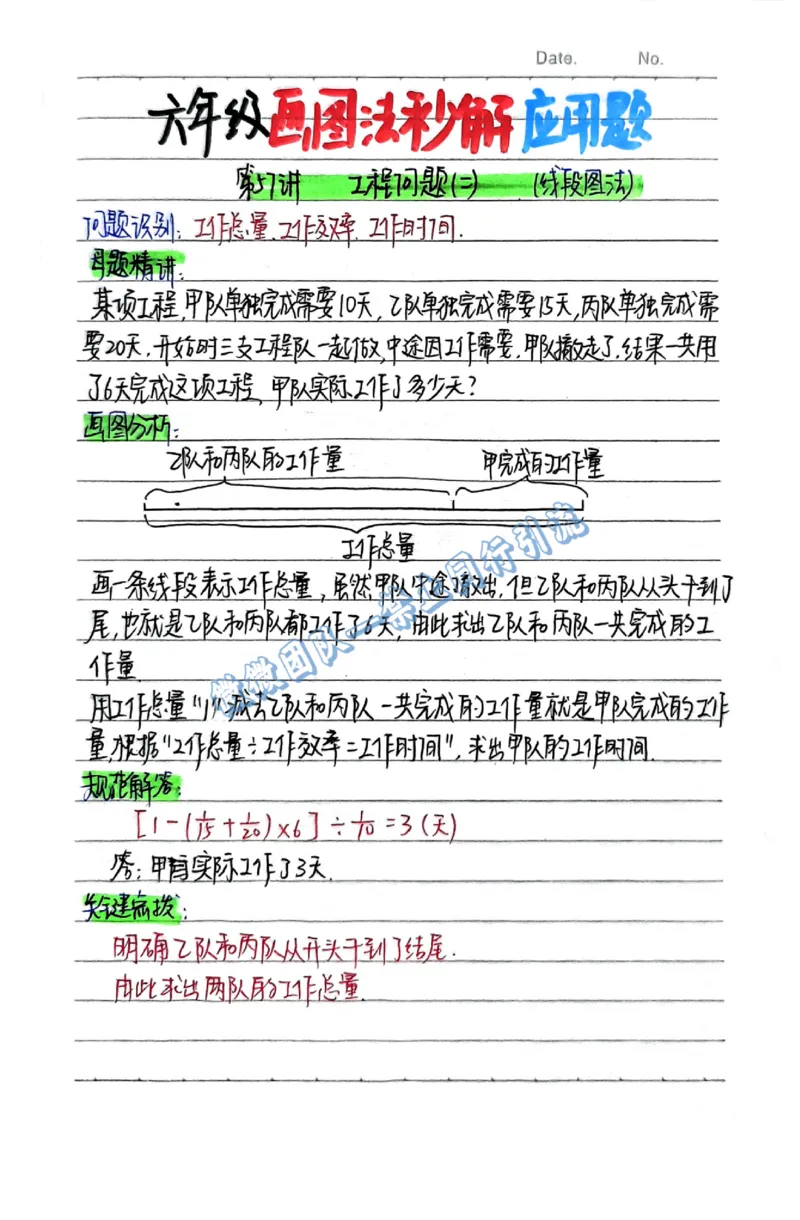 Date. No.
六年级画图法秒解应用题
第57讲 工程问题(二) (线段图法)
问题识别：工作总量、工作效率、工作时间.
母题精讲：
某项工程,甲队单独完成需要10天,乙队单独完成需要15天,丙队单独完成需
要20天.开始时三支工程队一起做,中途因工作需要,甲队撤走了.结果一共用
了6天完成这项工程,甲队实际工作了多少天？
画图分析：
乙队和丙队的工作量 甲完成的工作量
工作总量
画一条线段表示工作总量,虽然甲队中途撤出,但乙队和丙队从头干到了
尾,也就是乙队和丙队都工作了6天,由此求出乙队和丙队一共完成的工
作量.
用工作总量"1"减去乙队和丙队一共完成的工作量就是甲队完成的工作
量,根据"工作总量÷工作效率=工作时间",求出甲队的工作时间.
规范解答：
[1-(1/15+1/20)×6]÷1/10=3(天)
答：甲队实际工作了3天.
关键点拨：
明确乙队和丙队从开头干到了结尾.
由此求出两队的工作总量.
微微团队一禁止同行引流